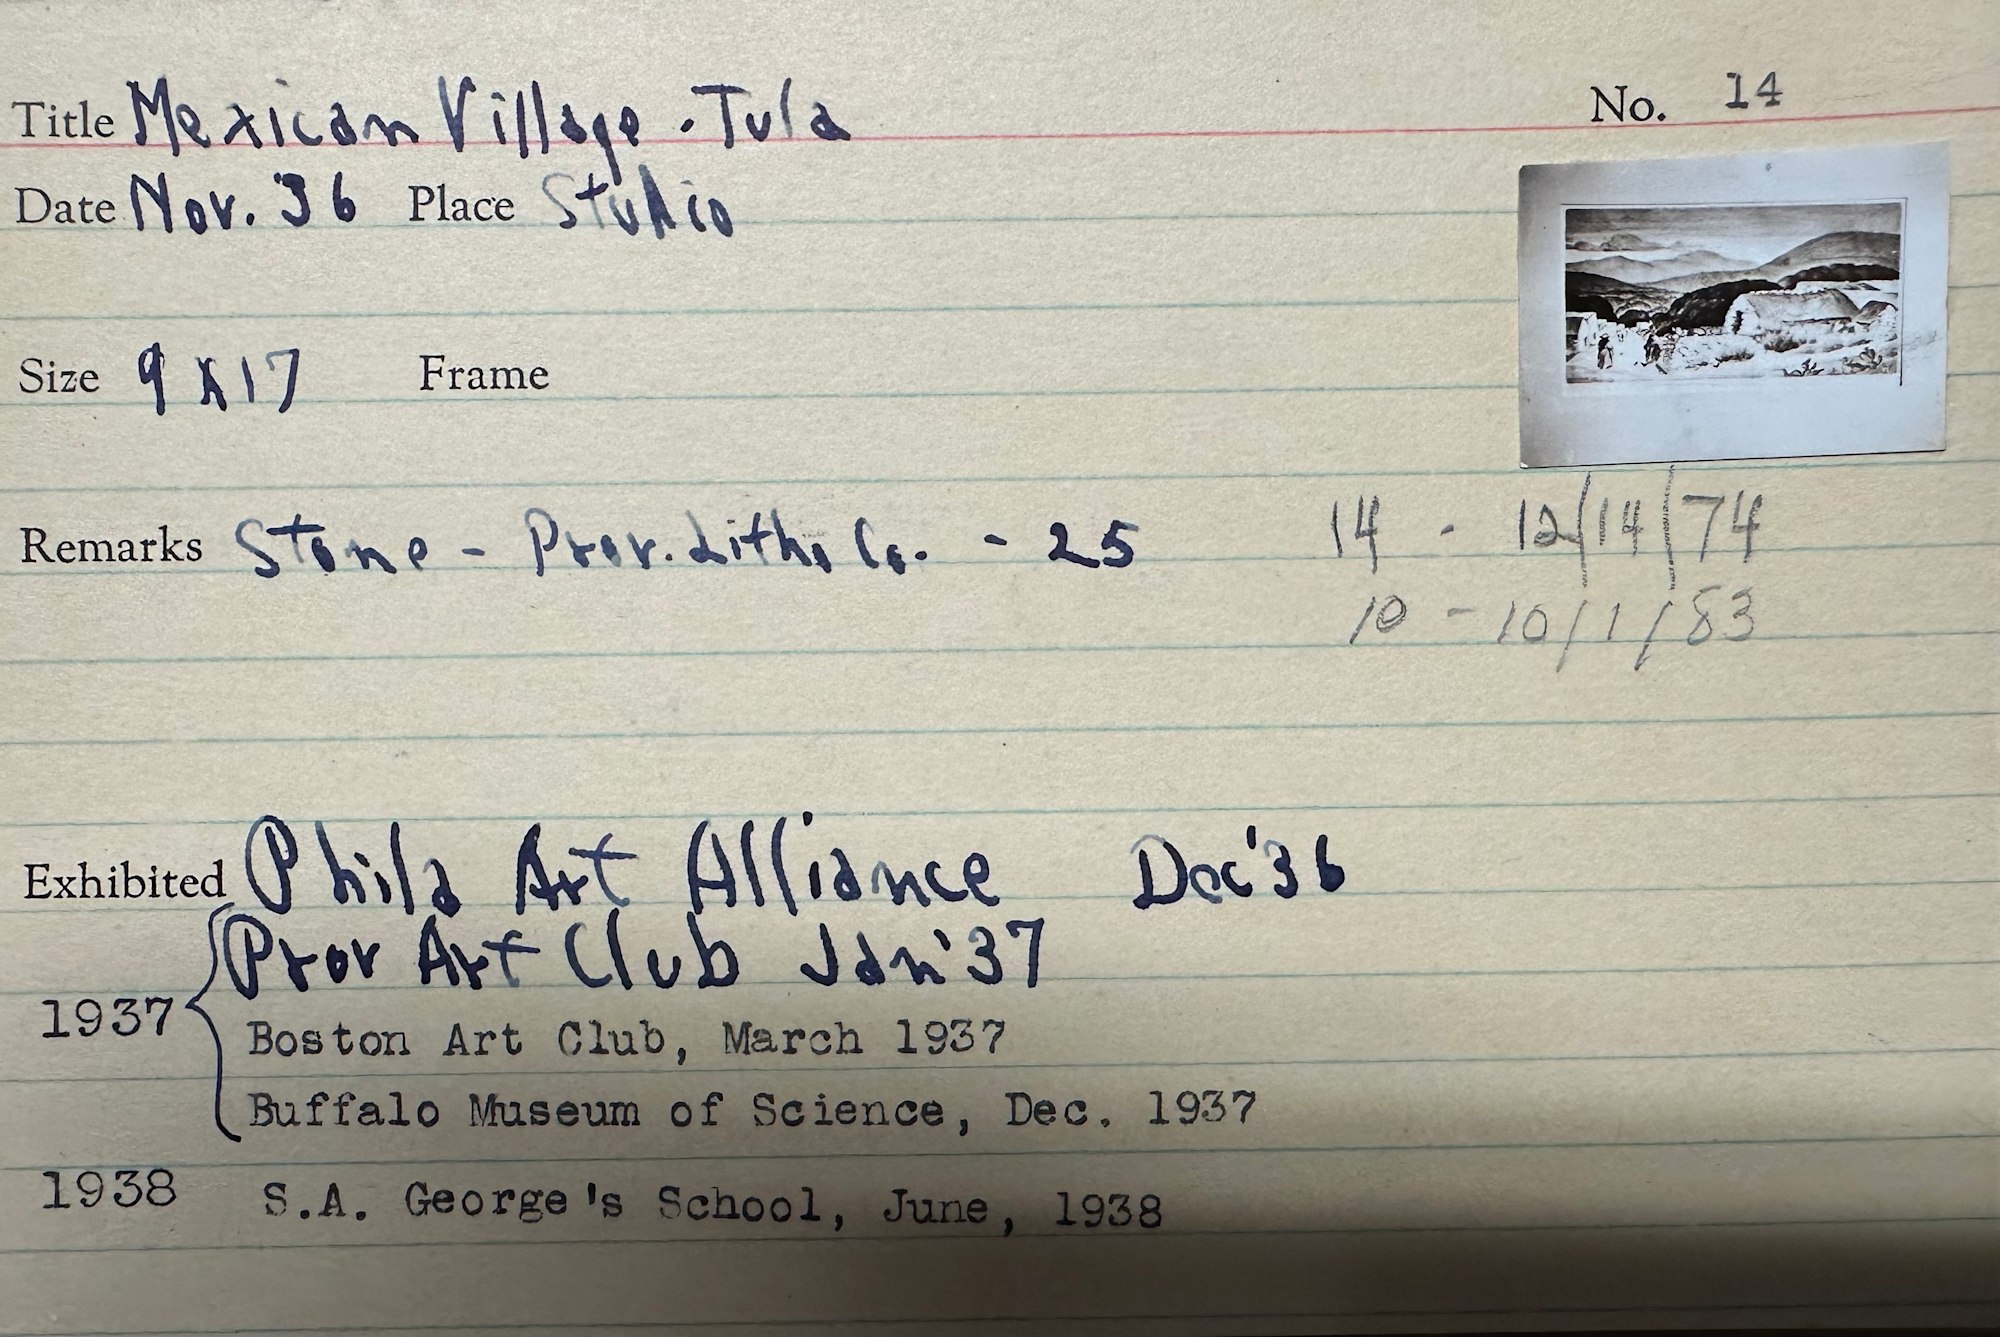 Title Mexican Village - Tula No. 14
Date Nov. 36 Place Studio
Size 9 X 17 Frame
Remarks Stone - Prov. Litho Co. - 25 14 - 12/14/74
10 - 10/1/83
Exhibited Phila Art Alliance Dec '36
Prov Art Club Jan '37
1937
Boston Art Club, March 1937
Buffalo Museum of Science, Dec. 1937
1938 S.A. George's School, June, 1938